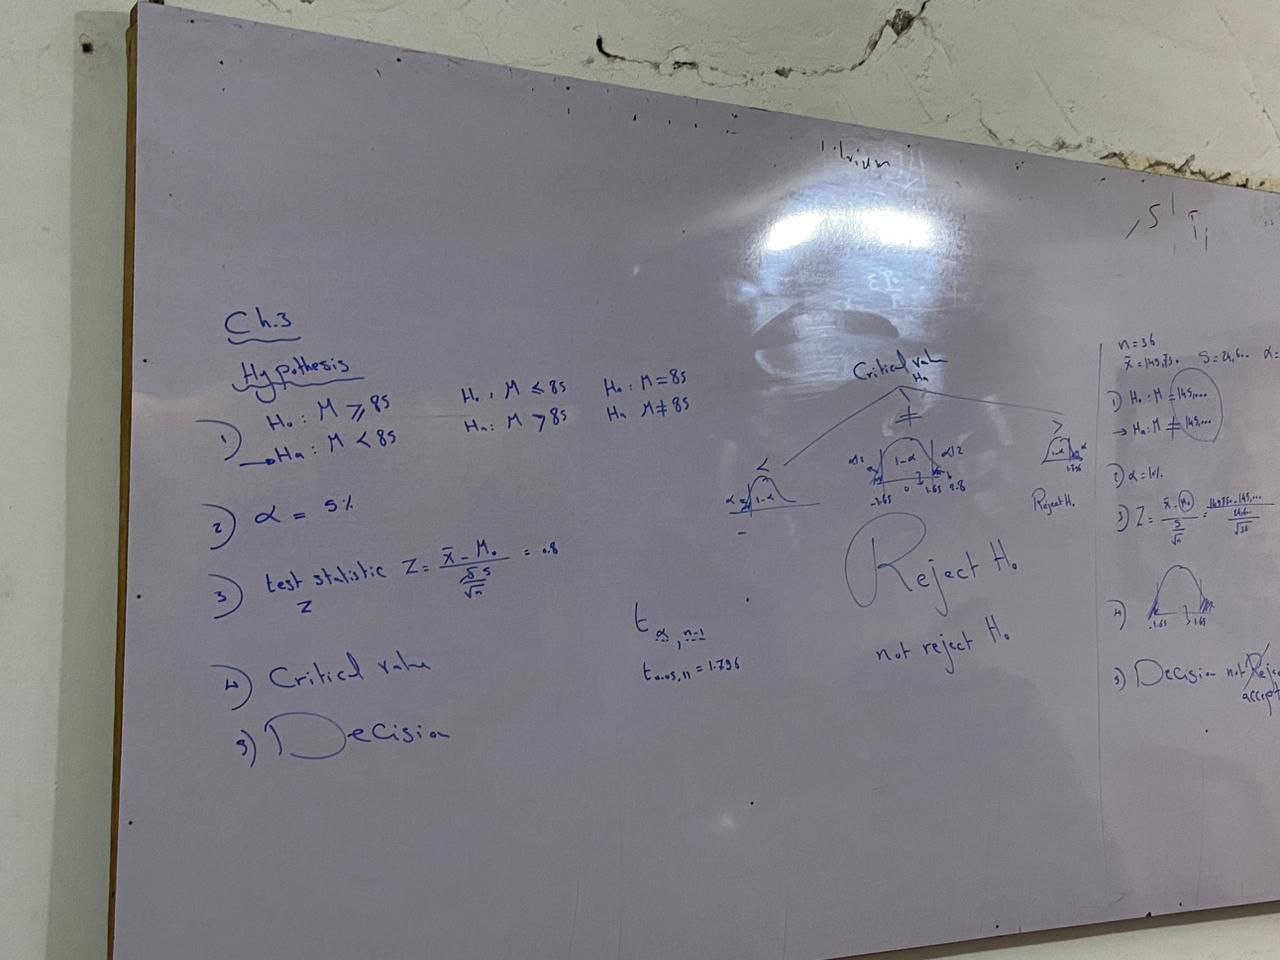 Ch.3
Hypothesis
1) H₀ : M ≥ 85
→ Ha : M < 85
H₀ : M ≤ 85
Ha : M > 85
H₀ : M = 85
Ha M ≠ 85
2) α = 5%
3) test statistic Z = x̄ - M₀ / s/√n = 0.8
Z
4) Critical value
5) Decision
t α, n-1
t 0.05, 11 = 1.796
Critical value
Ha
<
≠
>
α 1-α
-
α/2 1-α α/2
-1.65 0 1.65
1-α α
Reject H₀
Reject H₀
not reject H₀
n = 36
1) H₀ : M = 145,...
→ Ha : M ≠ 145,...
2) α = 10%
3) Z = x̄ - M₀ / s/√n =
4) -1.65 1.65
5) Decision not
accept